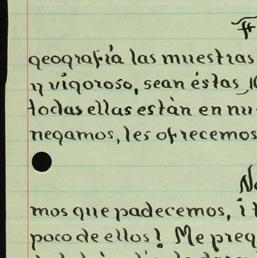 geografía las muestras
y vigoroso, sean éstas
todas ellas están en nu
negamos, les ofrecemos
mos que padecemos, i
poco de ellos! Me preg